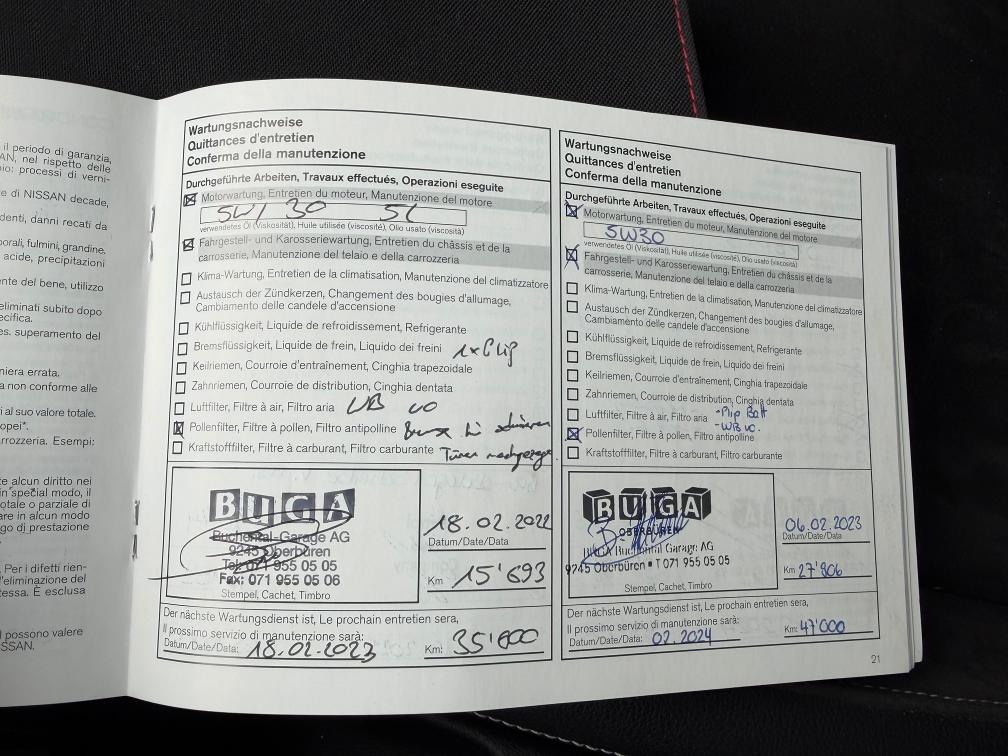 il periodo di garanzia,
AN, nel rispetto delle
nio: processi di verni-
e di NISSAN decade,
denti, danni recati da
orali, fulmini, grandine.
acide, precipitazioni
nte del bene, utilizzo
eliminati subito dopo
ecifica.
es. superamento del
niera errata.
a non conforme alle
i al suo valore totale.
opei*.
rrozzeria. Esempi:
e alcun diritto nei
in special modo, il
totale o parziale di
are in alcun modo
go di prestazione
Per i difetti rien-
l'eliminazione del
tessa. È esclusa
l possono valere
SSAN.
Wartungsnachweise
Quittances d'entretien
Conferma della manutenzione
Durchgeführte Arbeiten, Travaux effectués, Operazioni eseguite
Motorwartung, Entretien du moteur, Manutenzione del motore
5W/30 5L
verwendetes Öl (Viskosität), Huile utilisée (viscosité), Olio usato (viscosità)
Fahrgestell- und Karosseriewartung, Entretien du châssis et de la
carrosserie, Manutenzione del telaio e della carrozzeria
Klima-Wartung, Entretien de la climatisation, Manutenzione del climatizzatore
Austausch der Zündkerzen, Changement des bougies d'allumage,
Cambiamento delle candele d'accensione
Kühlflüssigkeit, Liquide de refroidissement, Refrigerante
Bremsflüssigkeit, Liquide de frein, Liquido dei freini 1x Clip
Keilriemen, Courroie d'entraînement, Cinghia trapezoidale
Zahnriemen, Courroie de distribution, Cinghia dentata
Luftfilter, Filtre à air, Filtro aria WB vo
Pollenfilter, Filtre à pollen, Filtro antipolline
Kraftstofffilter, Filtre à carburant, Filtro carburante Türen
BUGA
Buchental-Garage AG
9245 Oberbüren
Tel. 071 955 05 05
Fax: 071 955 05 06
Stempel, Cachet, Timbro
18.02.2022
Datum/Date/Data
Km 15'693
Der nächste Wartungsdienst ist, Le prochain entretien sera,
Il prossimo servizio di manutenzione sarà:
Datum/Date/Data: 18.02.2023 Km: 35'600
Wartungsnachweise
Quittances d'entretien
Conferma della manutenzione
Durchgeführte Arbeiten, Travaux effectués, Operazioni eseguite
Motorwartung, Entretien du moteur, Manutenzione del motore
5W30
verwendetes Öl (Viskosität), Huile utilisée (viscosité), Olio usato (viscosità)
Fahrgestell- und Karosseriewartung, Entretien du châssis et de la
carrosserie, Manutenzione del telaio e della carrozzeria
Klima-Wartung, Entretien de la climatisation, Manutenzione del climatizzatore
Austausch der Zündkerzen, Changement des bougies d'allumage,
Cambiamento delle candele d'accensione
Kühlflüssigkeit, Liquide de refroidissement, Refrigerante
Bremsflüssigkeit, Liquide de frein, Liquido dei freini
Keilriemen, Courroie d'entraînement, Cinghia trapezoidale
Zahnriemen, Courroie de distribution, Cinghia dentata
Luftfilter, Filtre à air, Filtro aria -Plip Batt
-WB vo.
Pollenfilter, Filtre à pollen, Filtro antipolline
Kraftstofffilter, Filtre à carburant, Filtro carburante
BUGA
OBERBÜREN
BUGA Buchental Garage AG
9245 Oberbüren • T 071 955 05 05
Stempel, Cachet, Timbro
06.02.2023
Datum/Date/Data
Km 27'806
Der nächste Wartungsdienst ist, Le prochain entretien sera,
Il prossimo servizio di manutenzione sarà:
Datum/Date/Data: 02.2024 Km: 47'000
21